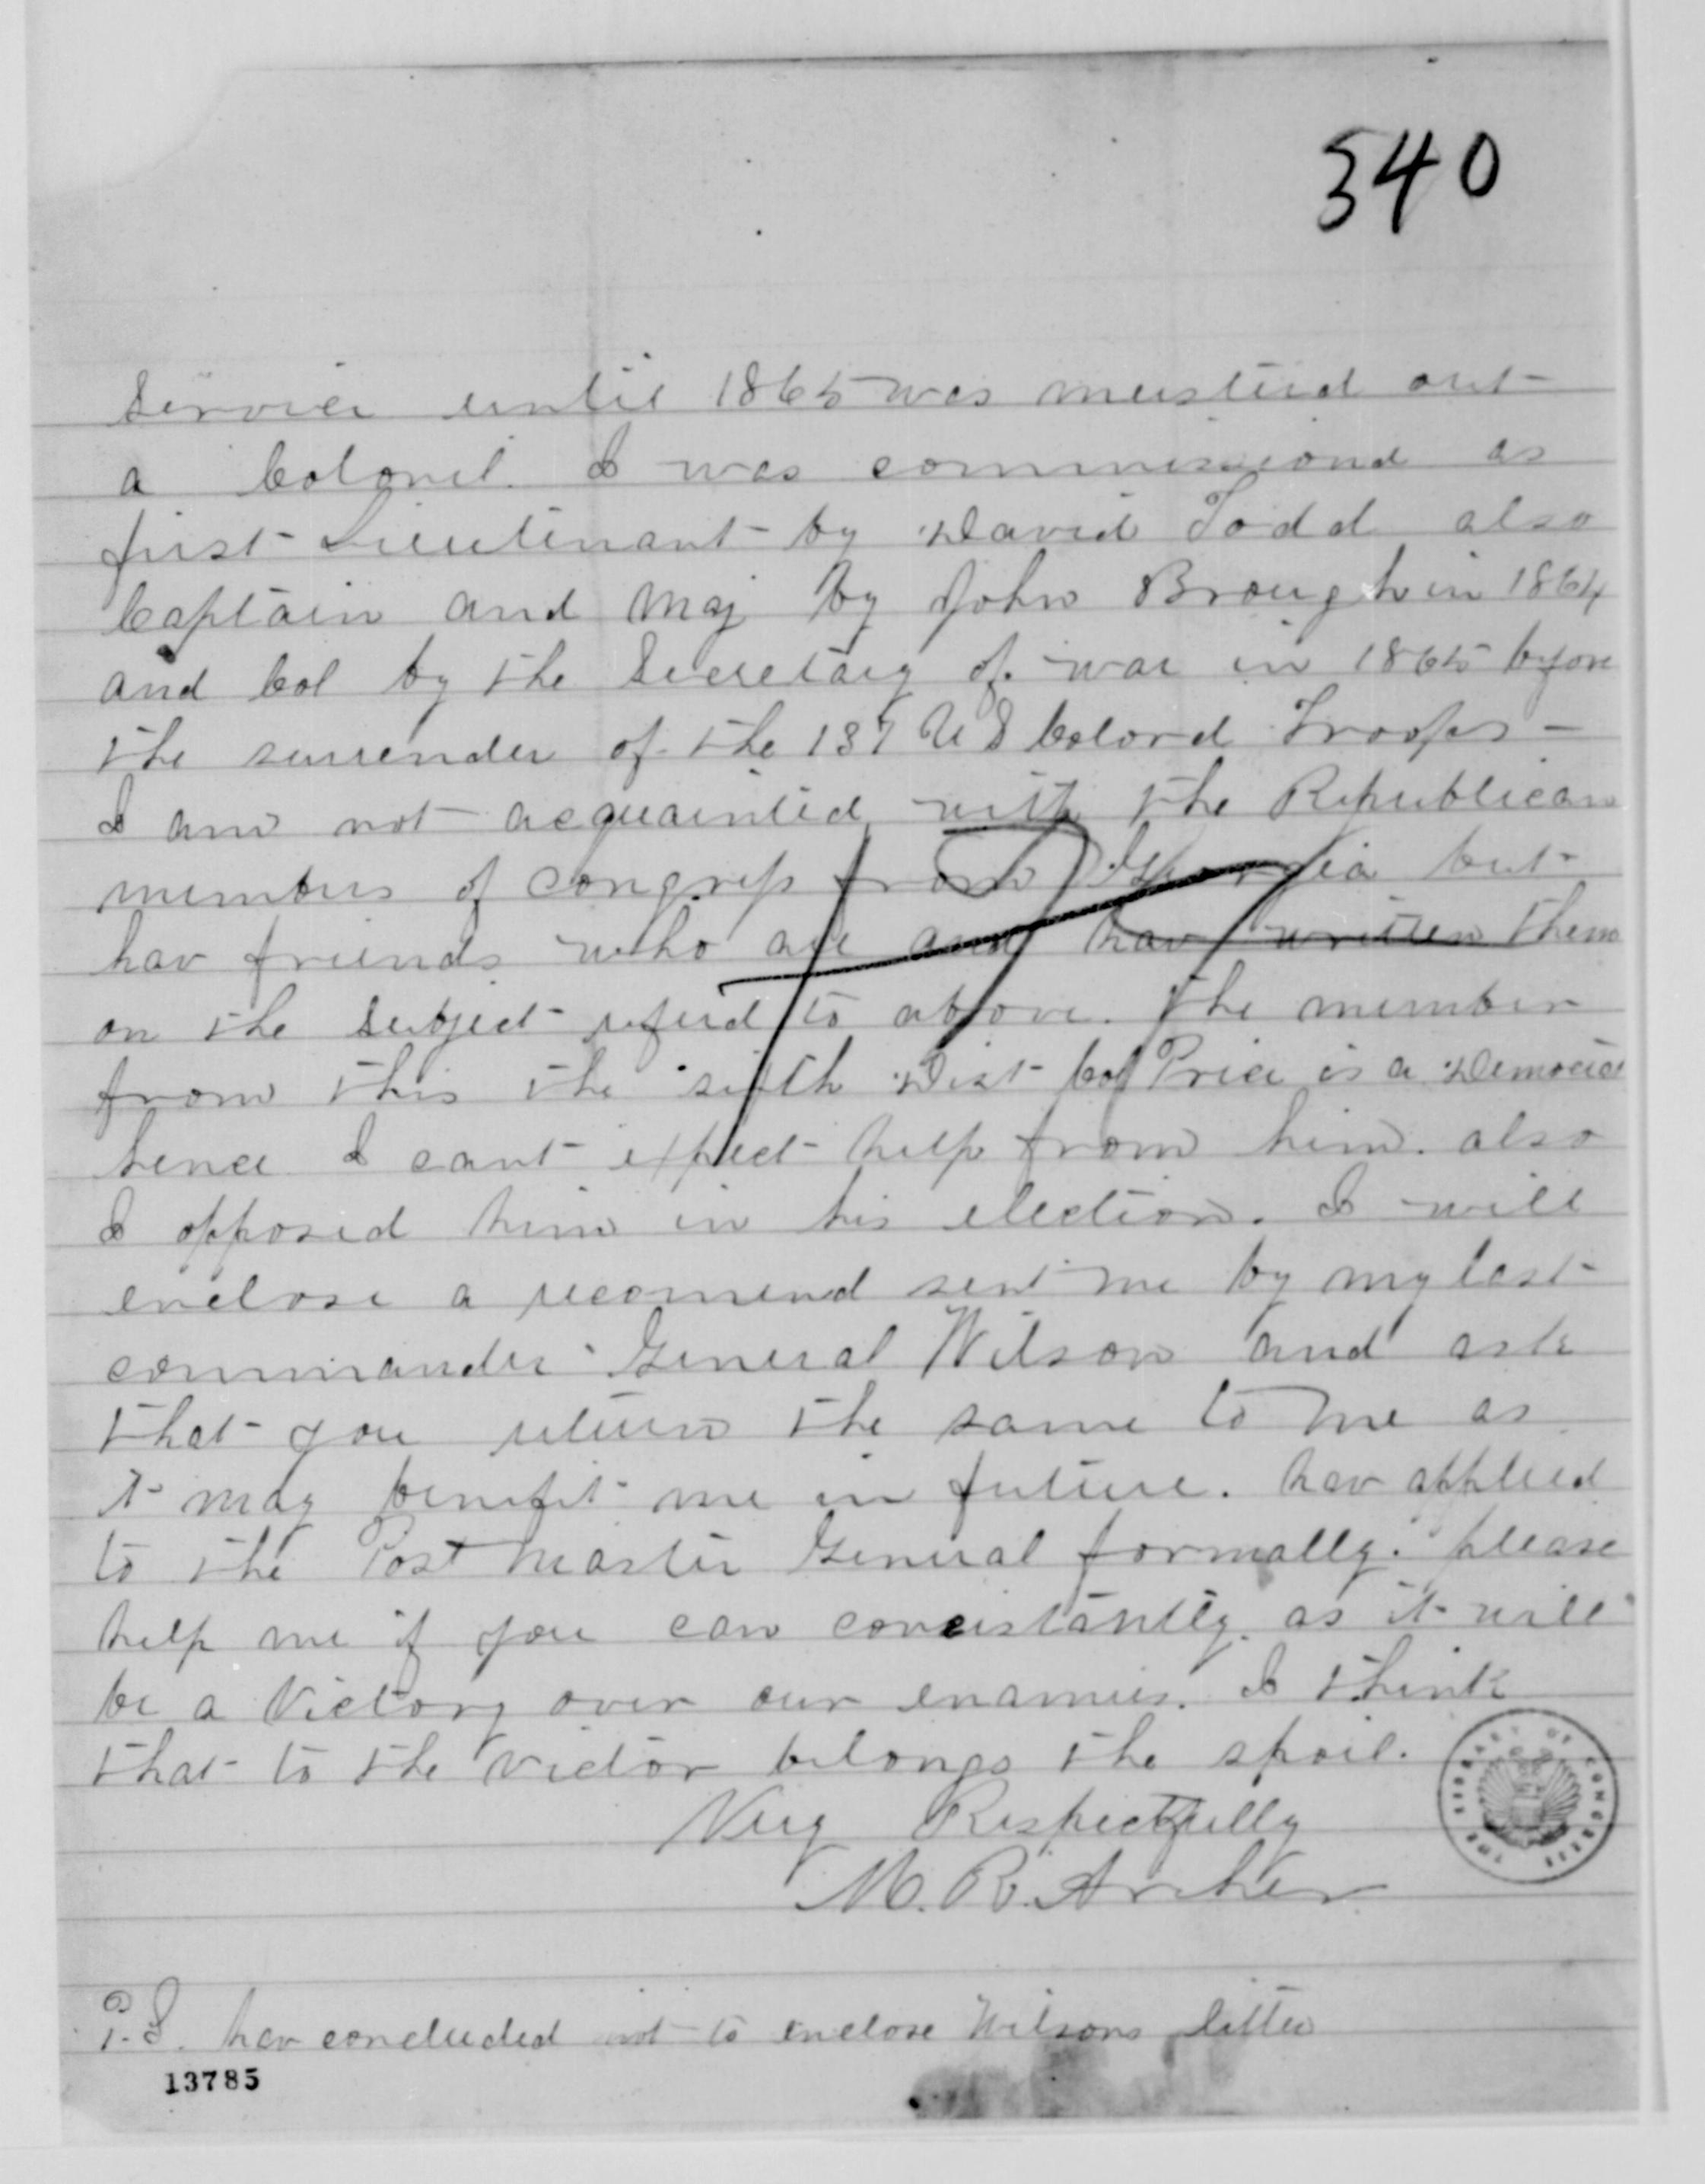 540
Service until 1865 was musterd out
a Colonel. I was commissiond as
first Lieutenant by David Todd also
Captain and Maj by John Brough in 1864
and Col by the Secretary of war in 1865 before
the surrender of the 137 U S Colord Troops —
I am not acquainted with the Republican
members of Congress from Georgia but
hav friends who are and hav written them
on the subject referd to above. The member
from this the sixth Dist Col Price is a Democrat
hence I cant expect help from him. also
I opposed him in his election. I will
enclose a recomend sent me by my last
commander General Wilson and ask
that you return the same to me as
it may benefit me in future. hav applied
to the Post Master General formally. please
help me if you can concistantly. as it will
be a Victory over our enamies. I think
that to the victor belongs the spoil.
Very Respectfully
M. R. Archer
P.S. hav concluded not to enclose Wilsons letter
13785
THE LIBRARY OF CONGRESS